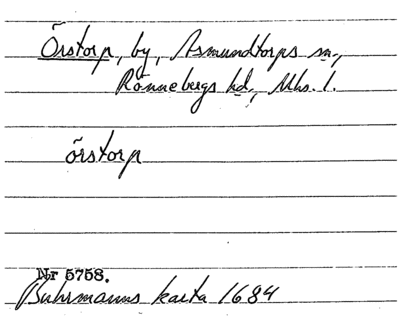 Örstorp, by, Asmundtorps sn.,
Rönnebergs hd., Mhs. l.
örstorp
Nr 5758.
Buhrmanns karta 1684